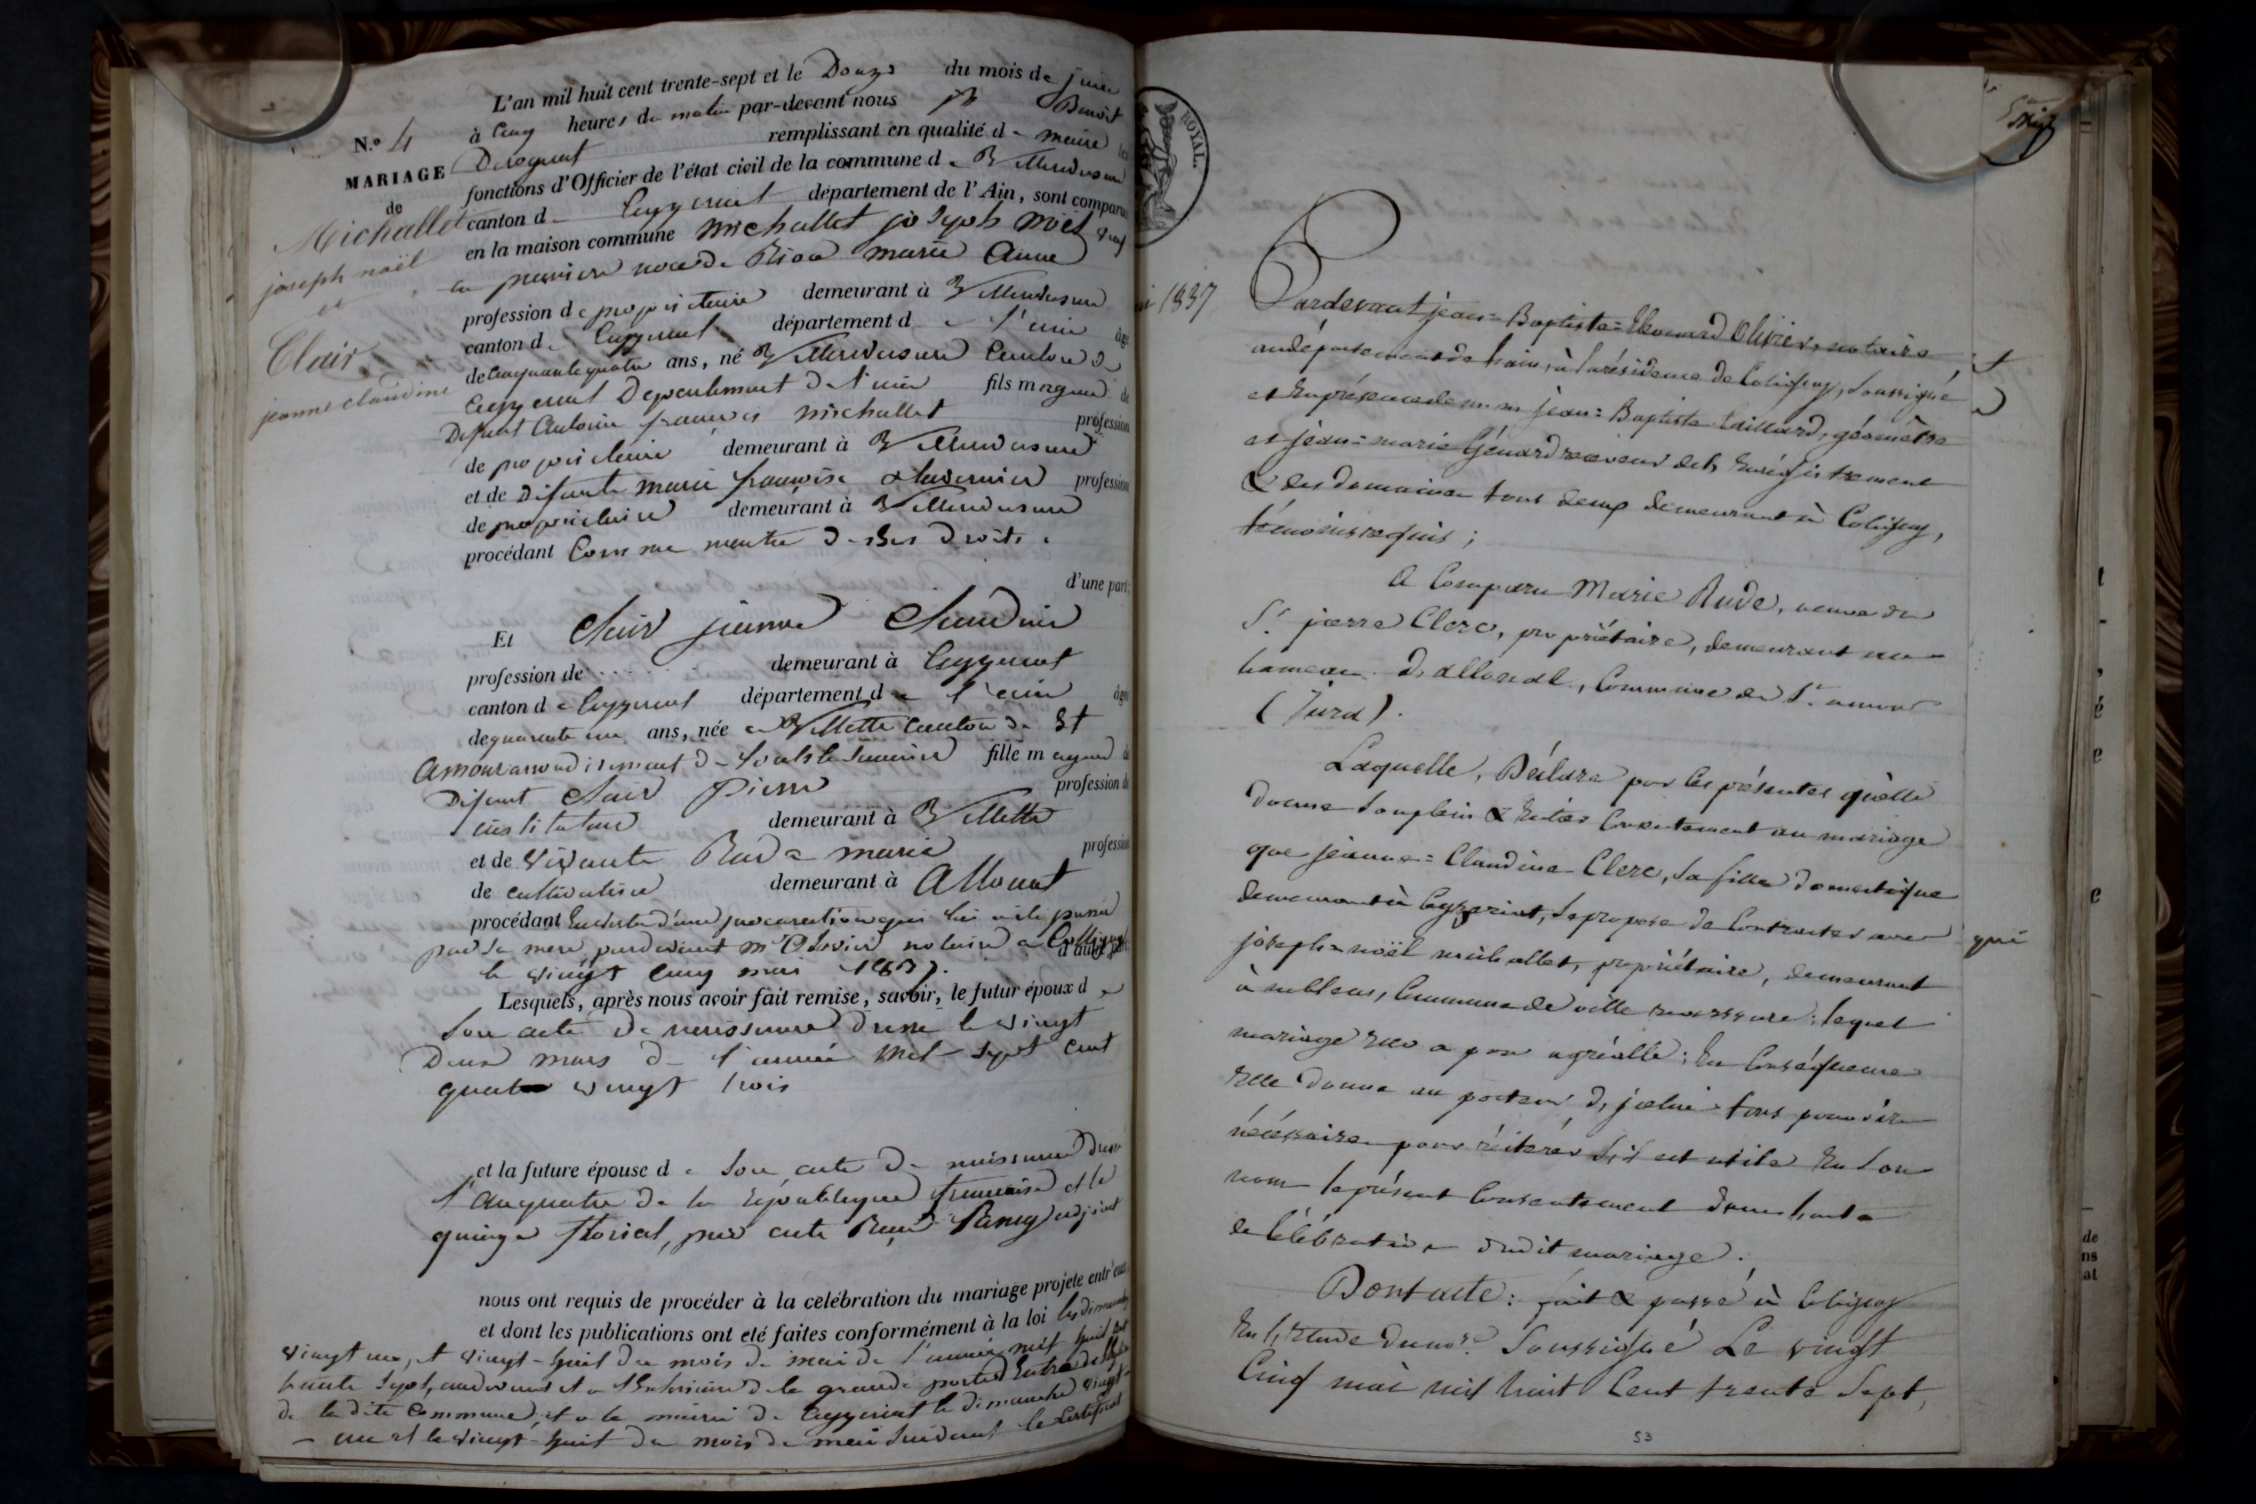 L'an mil huit cent trente-sept et le Douze du mois de juin
à Cinq heures du matin par-devant nous Benoit
remplissant en qualité de maire les
fonctions d'Officier de l'état civil de la commune de Villereversure
canton de Ceyzeriat département de l'Ain, sont comparus
en la maison commune michallet joseph Noël veuf
en premiere noce de marie anne
profession de propriétaire demeurant à Villereversure
canton de Ceyzeriat département de l'ain âgé
de cinquante quatre ans, né à Villereversure Canton de
Ceyzeriat Département de l'ain fils mageur de
Defunt Antoine françois michallet profession
de propriétaire demeurant à Villereversure
et de Defunte marie françoise profession
de propriétaire demeurant à Villereversure
procédant Comme maitre de ses droits
d'une part;
N.º 4
MARIAGE
de
Michallet
joseph noël
et
Clair
jeanne claudine
Et Clair jeanne Claudine
profession de demeurant à Ceyzeriat
canton de Ceyzeriat département de l'ain âgée
de quarante un ans, née à Villette Canton de St
Amour arrondissement de fille mageure de
Defunt Clair Pierre profession de
instituteur demeurant à Villette
et de vivante Rude marie profession
de cultivatrice demeurant à Allonal
procédant En vertu d'une procuration qui lui a été passée
par sa mere pardevant Me Olivier notaire a Colligny
d'autre part.
le vingt cinq mai 1837.
Lesquels, après nous avoir fait remise, savoir, le futur époux de
son acte de naissance dressé le vingt
Deux mars de l'année mil sept cent
quatre vingt trois
et la future épouse de son acte de naissance dressé
l'an quatre de la république française et le
quinze floréal, par acte adjoint
nous ont requis de procéder à la celébration du mariage projeté entr'eux
et dont les publications ont été faites conformément à la loi les dimanches
vingt un, et vingt-huit du mois de mai de l'année mil huit cent
trente sept, audevant et a l'Exterieure de la grande porte d'Entrée de
de la dite commune, et a la mairie de Ceyzeriat le dimanche vingt
un et le vingt-huit du mois de mai suivant le certificat
ROYAL.
mai 1837
Pardevant jean=Baptiste=Edouard Olivier, notaire
au département de l'ain, à la résidence de Coligny, soussigné
et En présence de mm jean=Baptiste Taillard, géomètre
et jean=marie Génard receveur de l'Enrégistrement
& des domaines tous deux demeurant à Coligny,
témoins requis;
A Comparu Marie Rude, veuve du
Sr pierre Clerc, propriétaire, demeurant au
hameau d'allonal, Commune de St amour
(Jura).
Laquelle, Déclare par les présentes qu'elle
donne son plein & Entier Consentement au mariage
que jeanne=Claudine Clerc, sa fille domestique
demeurant à Ceyzeriat, se propose de Contracter avec
joseph=noël michallet, propriétaire, demeurant
à sublens, Commune de ville reversure; lequel
mariage Elle a pour agréable; En Conséquence
Elle donne au porteur d'icelui tous pouvoirs
nécessaires pour réitérer s'il est utile En son
nom le présent Consentement dans l'acte
de Célébration dudit mariage.
Dont acte: fait & passé à Coligny
En l'Etude du nre soussigné Le vingt
Cinq mai mil huit Cent trente Sept,
qui
53
de
ns
at